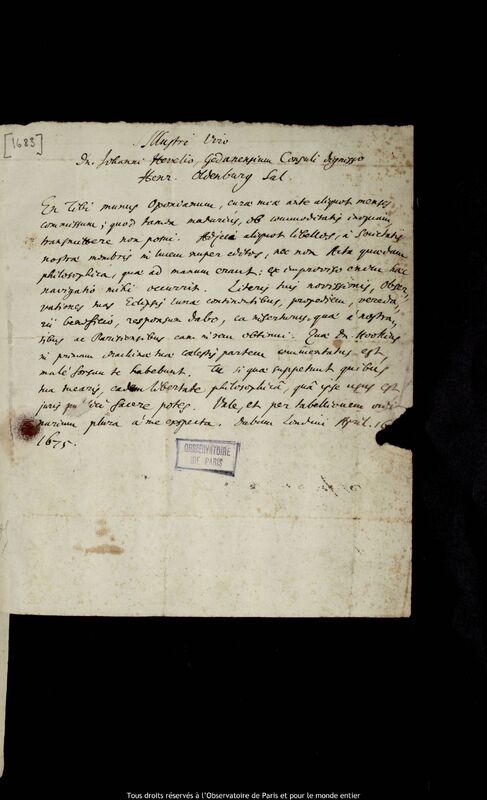 [1683]
Illustri Viro
Dn. Johanni Hevelio, Gedanensium Consuli dignissimo
Henr. Oldenburg Sal.
En Tibi munus Oxonianum, curae meae ante aliquot menses
commissum; quod tamen maturius, ob commoditatis inopiam
transmittere non potui. Adjeci aliquot libellos, à Societatis
nostrae membris in lucem nuper editos, nec non Acta quaedam
philosophica, quae ad manum erant: ex improviso enim haec
navigatio mihi occurrit. Literis tuis novissimis, Obser-
vationes tuas Eclipsis Lunae continentibus, propediem, vereda-
rii beneficio, responsum dabo, ea inserturus, quae à nostra-
tibus ac Parisiensibus eam in rem obtinui. Quae Dn. Hookius
in primam Machinae tuae Coelestis partem commentatus est,
male forsan te habebunt. Tu si qua suppetunt quibus
tua tuearis, eadem libertate philosophicâ, quâ ipse usus est
juris facere potes. Vale, et per tabellionem ordi-
narium plura à me exspecta. Dabam Londini April. 16
1675.
OBSERVATOIRE
DE PARIS
Tous droits réservés à l'Observatoire de Paris et pour le monde entier